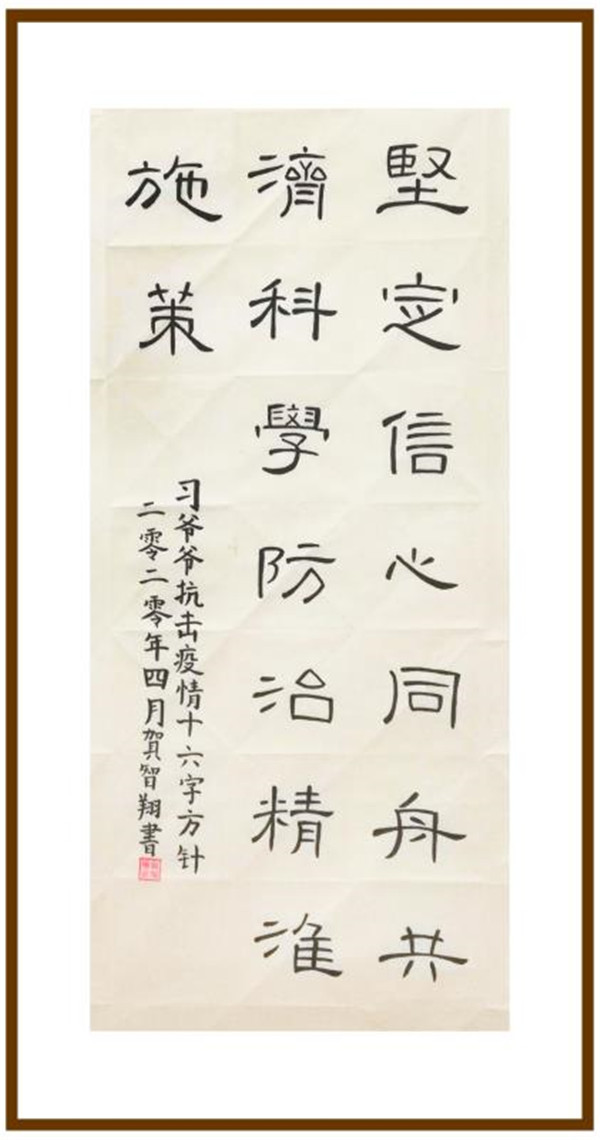 堅定信心同舟共
濟科學防治精準
施策
习爷爷抗击疫情十六字方针
二零二零年四月贺智翔書